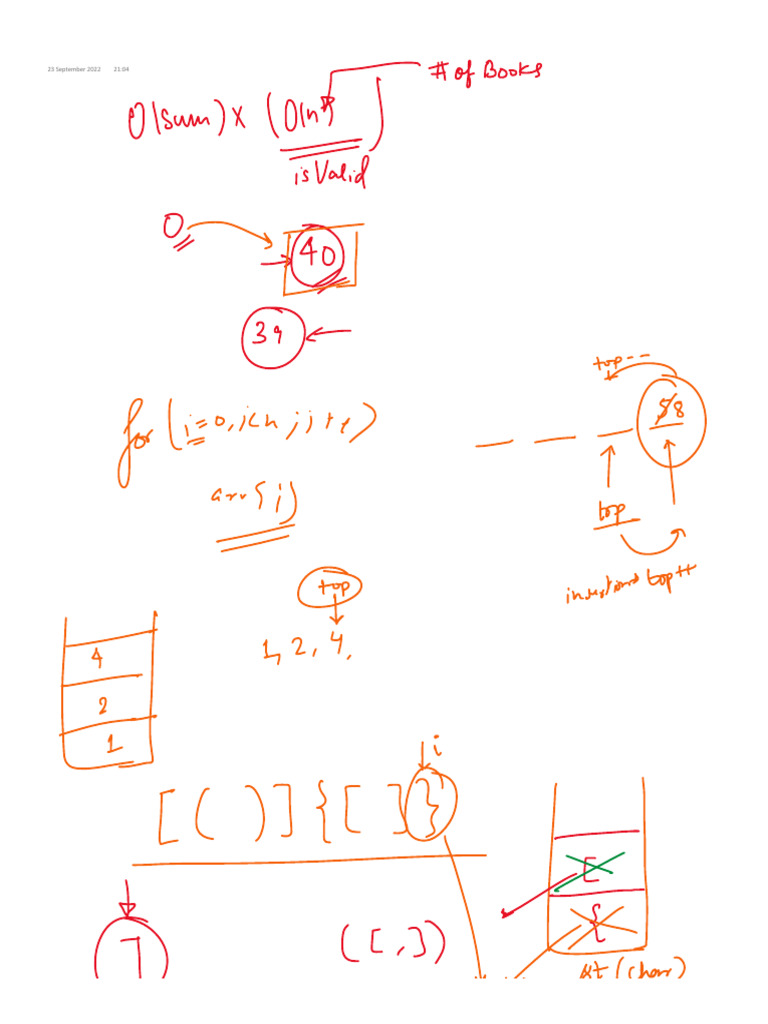 23 September 2022 21:04
# of Books
O(sum) x (O(n))
isValid
0
40
39
top--
58
for (i=0, i<n; i++)
arr{i)
top
insertion top++
top
1, 2, 4,
4
2
1
i
[ ( ) ] { [ ] }
[
{
7
( [ , ] )
st (char)